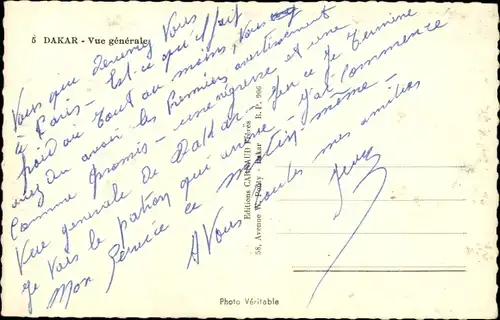 5 DAKAR - Vue générale
Vous que devenez Vous
à Paris - Est-ce qu'il fait
froid ou tout au moins, Vous
avez du avoir les Premiers avertissements
Comme promis - une négresse et une
Vue generale de Dakar - Sur ce Je Termine
Je vois le patron qui arrive - J'ai Commencé
Mon Service ce matin même -
A Vous toutes mes amitiés
Editions CARNAUD Frères
58, Avenue W. Ponty - Dakar B. P. 996
Photo Véritable